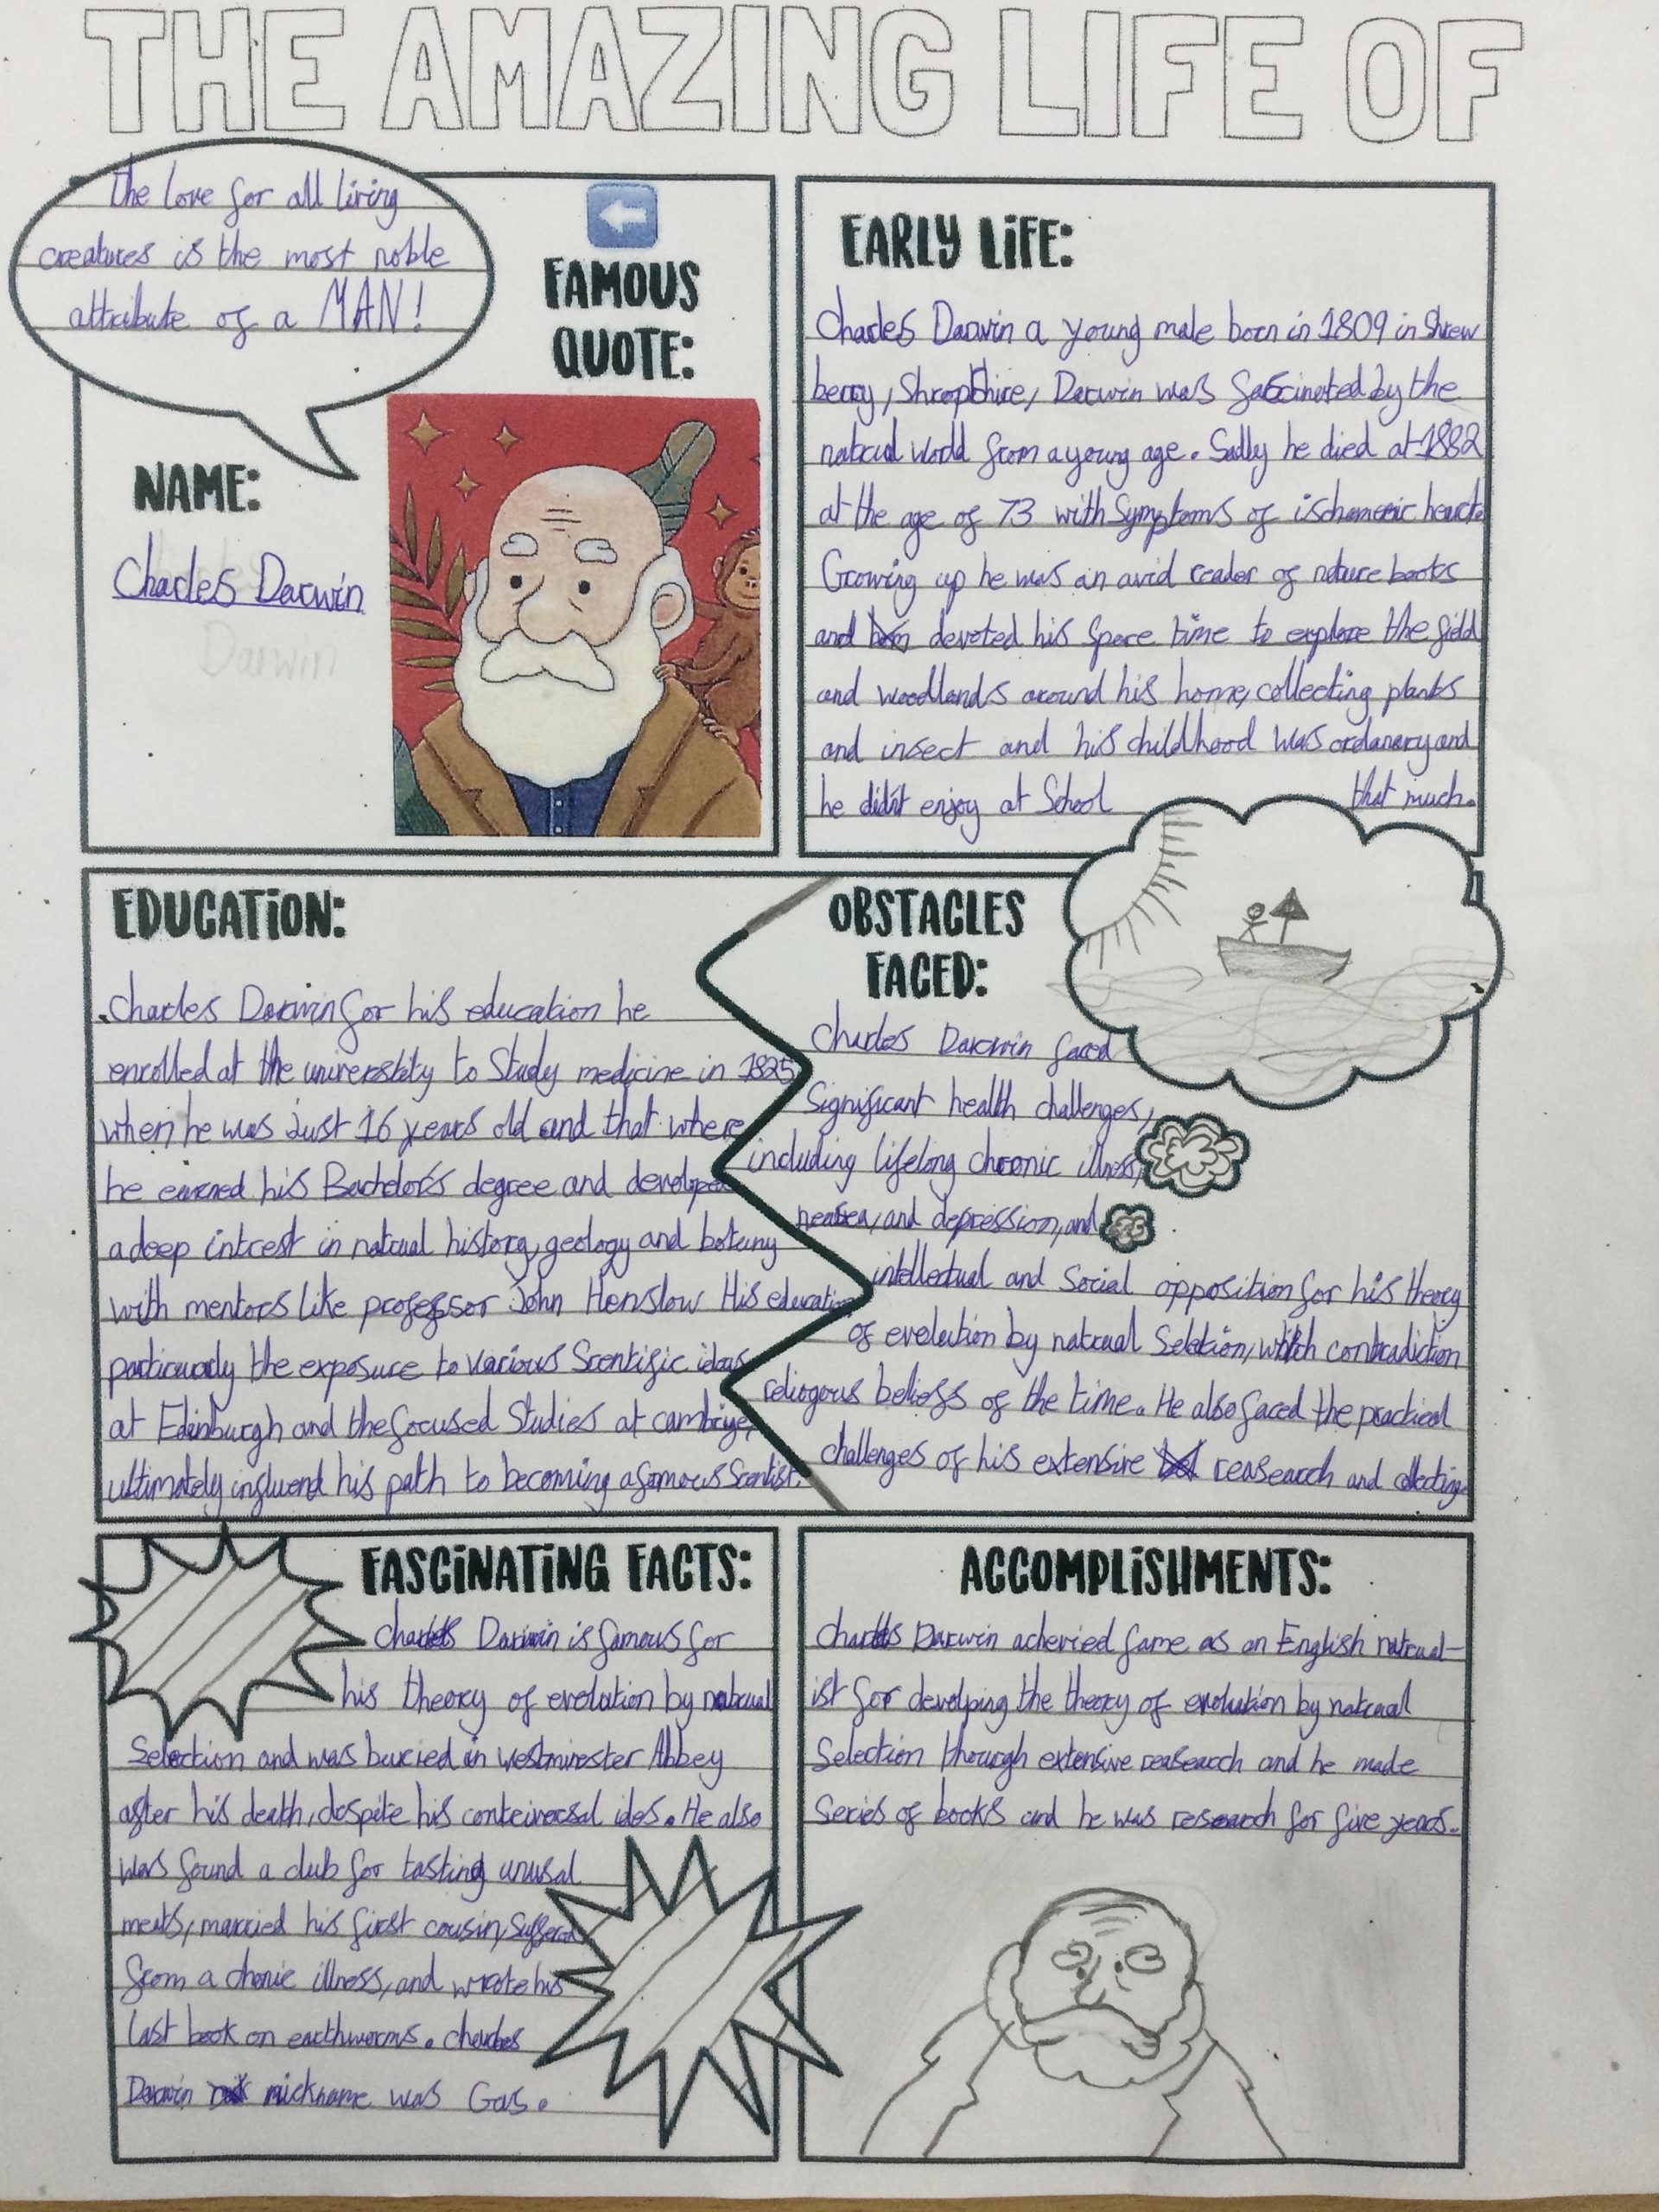 THE AMAZING LIFE OF
The love for all living
creatures is the most noble
attribute of a MAN!
FAMOUS
QUOTE:
NAME:
Charles Darwin
Darwin
EARLY LIFE:
Charles Darwin a young male born in 1809 in Shrew
berry, Shropshire, Darwin was fascinated by the
natural world from a young age. Sadly he died at 1882
at the age of 73 with Symptoms of ischameric heart.
Growing up he was an avid reader of nature books
and devoted his spare time to explore the field
and woodlands around his home, collecting plants
and insect and his childhood was ordanary and
he didn't enjoy at School that much.
EDUCATION:
Charles Darwin for his education he
enrolled at the universtity to Study medicine in 1825
when he was Just 16 years old and that where
he earned his Bachelor's degree and develope
a deep intrest in natrual history, geology and botany
with mentors like professor John Henslow His education
particuarly the exposure to various Scentific ideas
at Edinburgh and the focused Studies at cambrige,
ultimately influend his path to becoming a famous Scentist.
OBSTACLES
FACED:
Charles Darwin faced
Significant health challenges,
including lifelong chronic illness,
neasea, and depression, and
intellectual and Social opposition for his theory
of evolution by natrual Selection, which contradiction
religous beliefs of the time. He also faced the practical
challenges of his extensive reasearch and collecting.
FASCINATING FACTS:
Charles Darwin is famous for
his theory of evolution by natrual
Selection and was buried in westminester Abbey
after his death, despite his conteiversal ides. He also
was found a club for tasting unusal
meats, married his first cousin, suffered
from a chonic illness, and wrote his
last book on earthworms. charles
Darwin nickname was Gas.
ACCOMPLISHMENTS:
Charles Darwin acheried fame as an English natrual-
ist for develping the theory of evolution by natrual
Selection through extensive reasearch and he made
Series of books and he was research for five years.